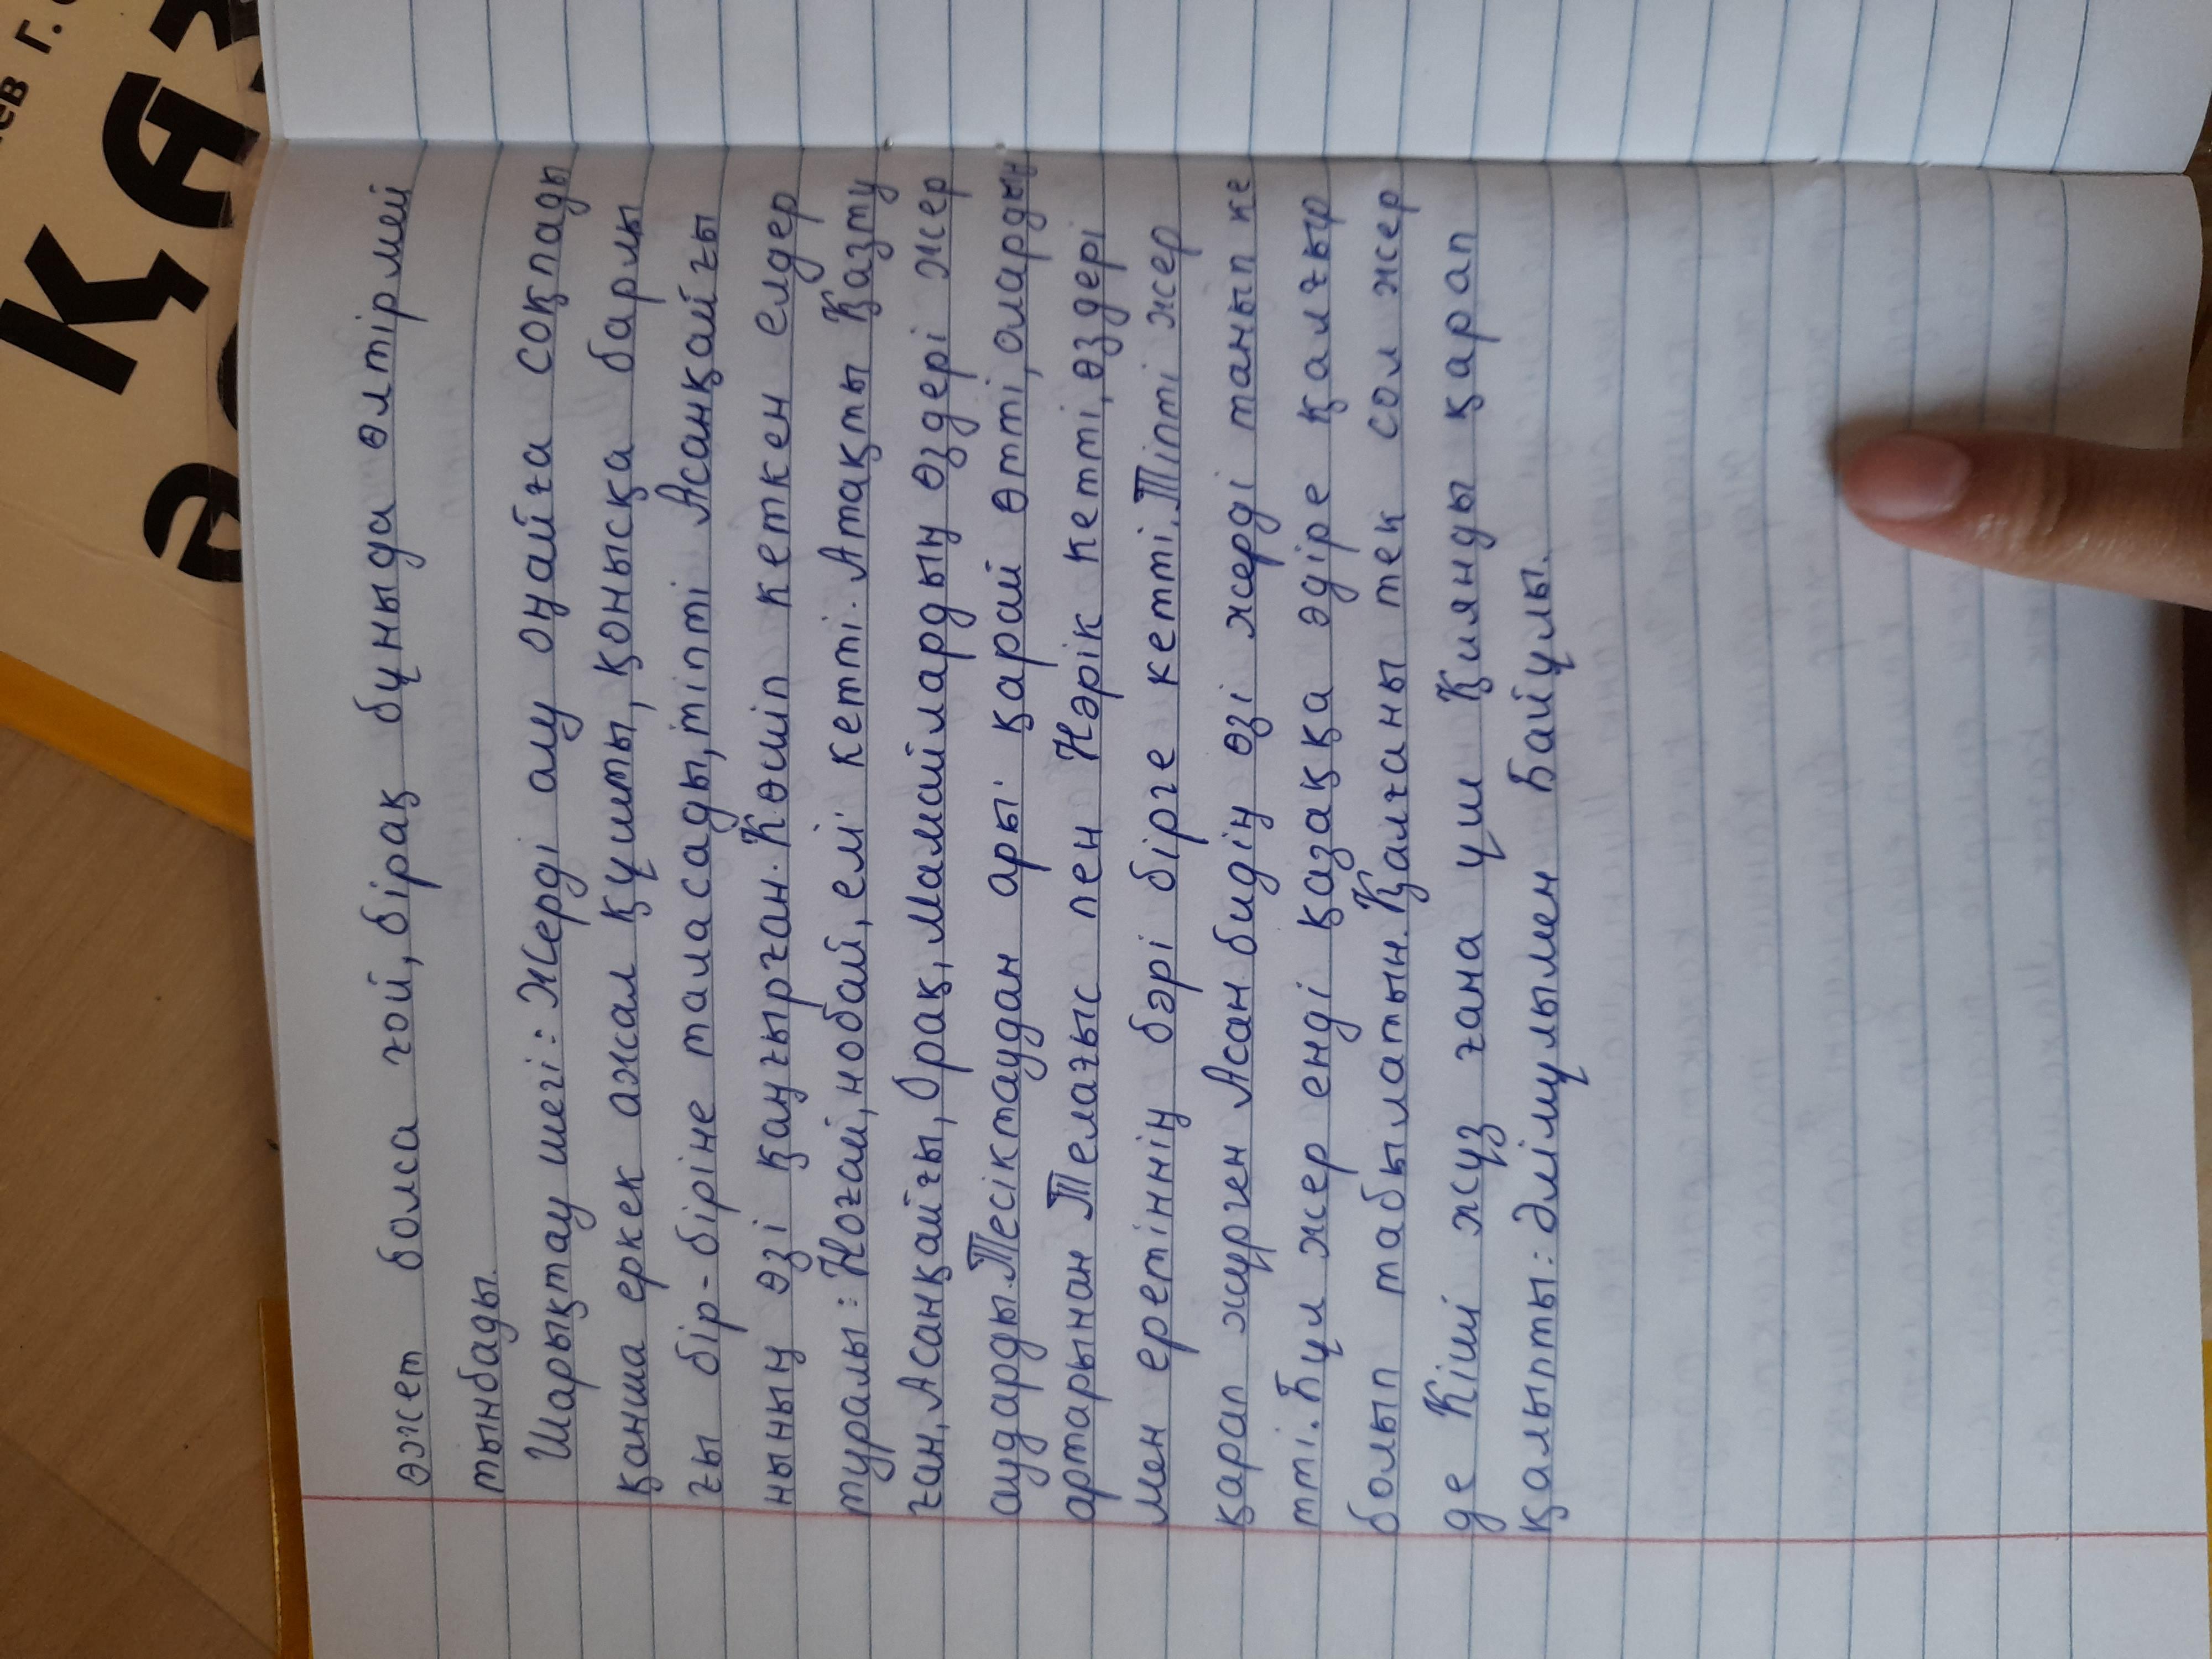 ев Г.
ҚАЗ
әд
өжет болса ғой, бірақ бұныда өлтірмей
тынбады.
Шарықтау шегі: Жерді алу оңайға соқпады
қанша еркек ажал құшты, қонысқа барлы
ғы бір-біріне таласады, тіпті Асанқайғы
ның өзі қаңғырған. Көшіп кеткен елдер
туралы: Ноғай, нобай, ем кетті. Атақты Қазту
ған, Асанқайғы, Орақ, Мамайлардың өздері жер
аударды. Тесіктаудан ары қарай өтті, олардың
артарынан Телағыс пен Нәрік кетті, өздері
мен еретіннің бәрі бірге кетті. Тіпті жер
қарап жүрген Асан бидің өзі жерді танып ке
тті. Бұл жер енді қазаққа әдіре қалғыр
болып табылатын. Қалғаны тек сол жер
де Кіші жүз ғана үш Қиянды қарап
қалыпты: Әлімұлымен Байұлы.